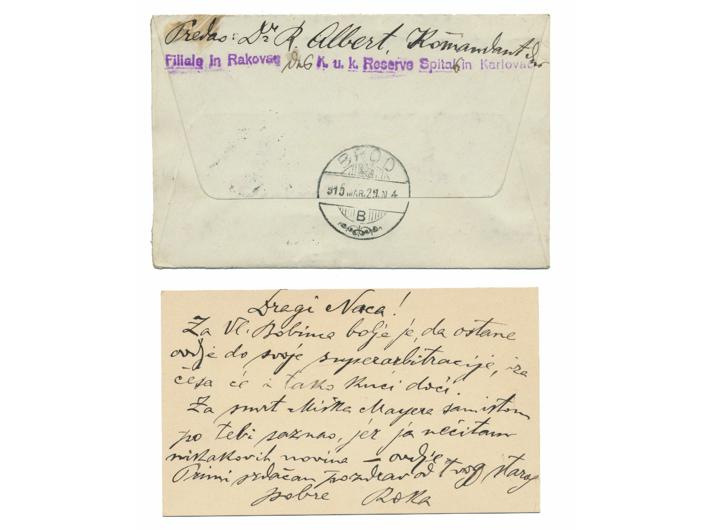 Predao: Dr R. Albert, Komandant
Filiale in Rakovac des K. u. k. Reserve Spital in Karlovac
BROD
915 MAR. 29. N 4
B
Dragi Naca!
Za Vl. Bobima bolje je, da ostane
ovdje do svoje superarbitracije, iza
česa će i tako kući doći.
Za smrt Miška Mayera sam istom
po tebi saznao, jer ja nečitam
nikakovih novina – ovdje
Primi srdačan pozdrav od tvog starog
pobre Roka